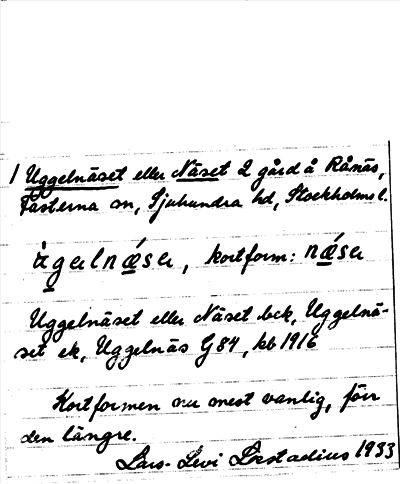 1 Uggelnäset eller Näset 2 gård å Rånäs,
Fasterna sn, Sjuhundra hd, Stockholms l.
kortform:
Uggelnäset eller Näset bck, Uggelnä-
set ek, Uggelnäs G84, kb 1916
Kortformen nu mest vanlig, förr
den längre.
Lars-Levi Læstadius 1933